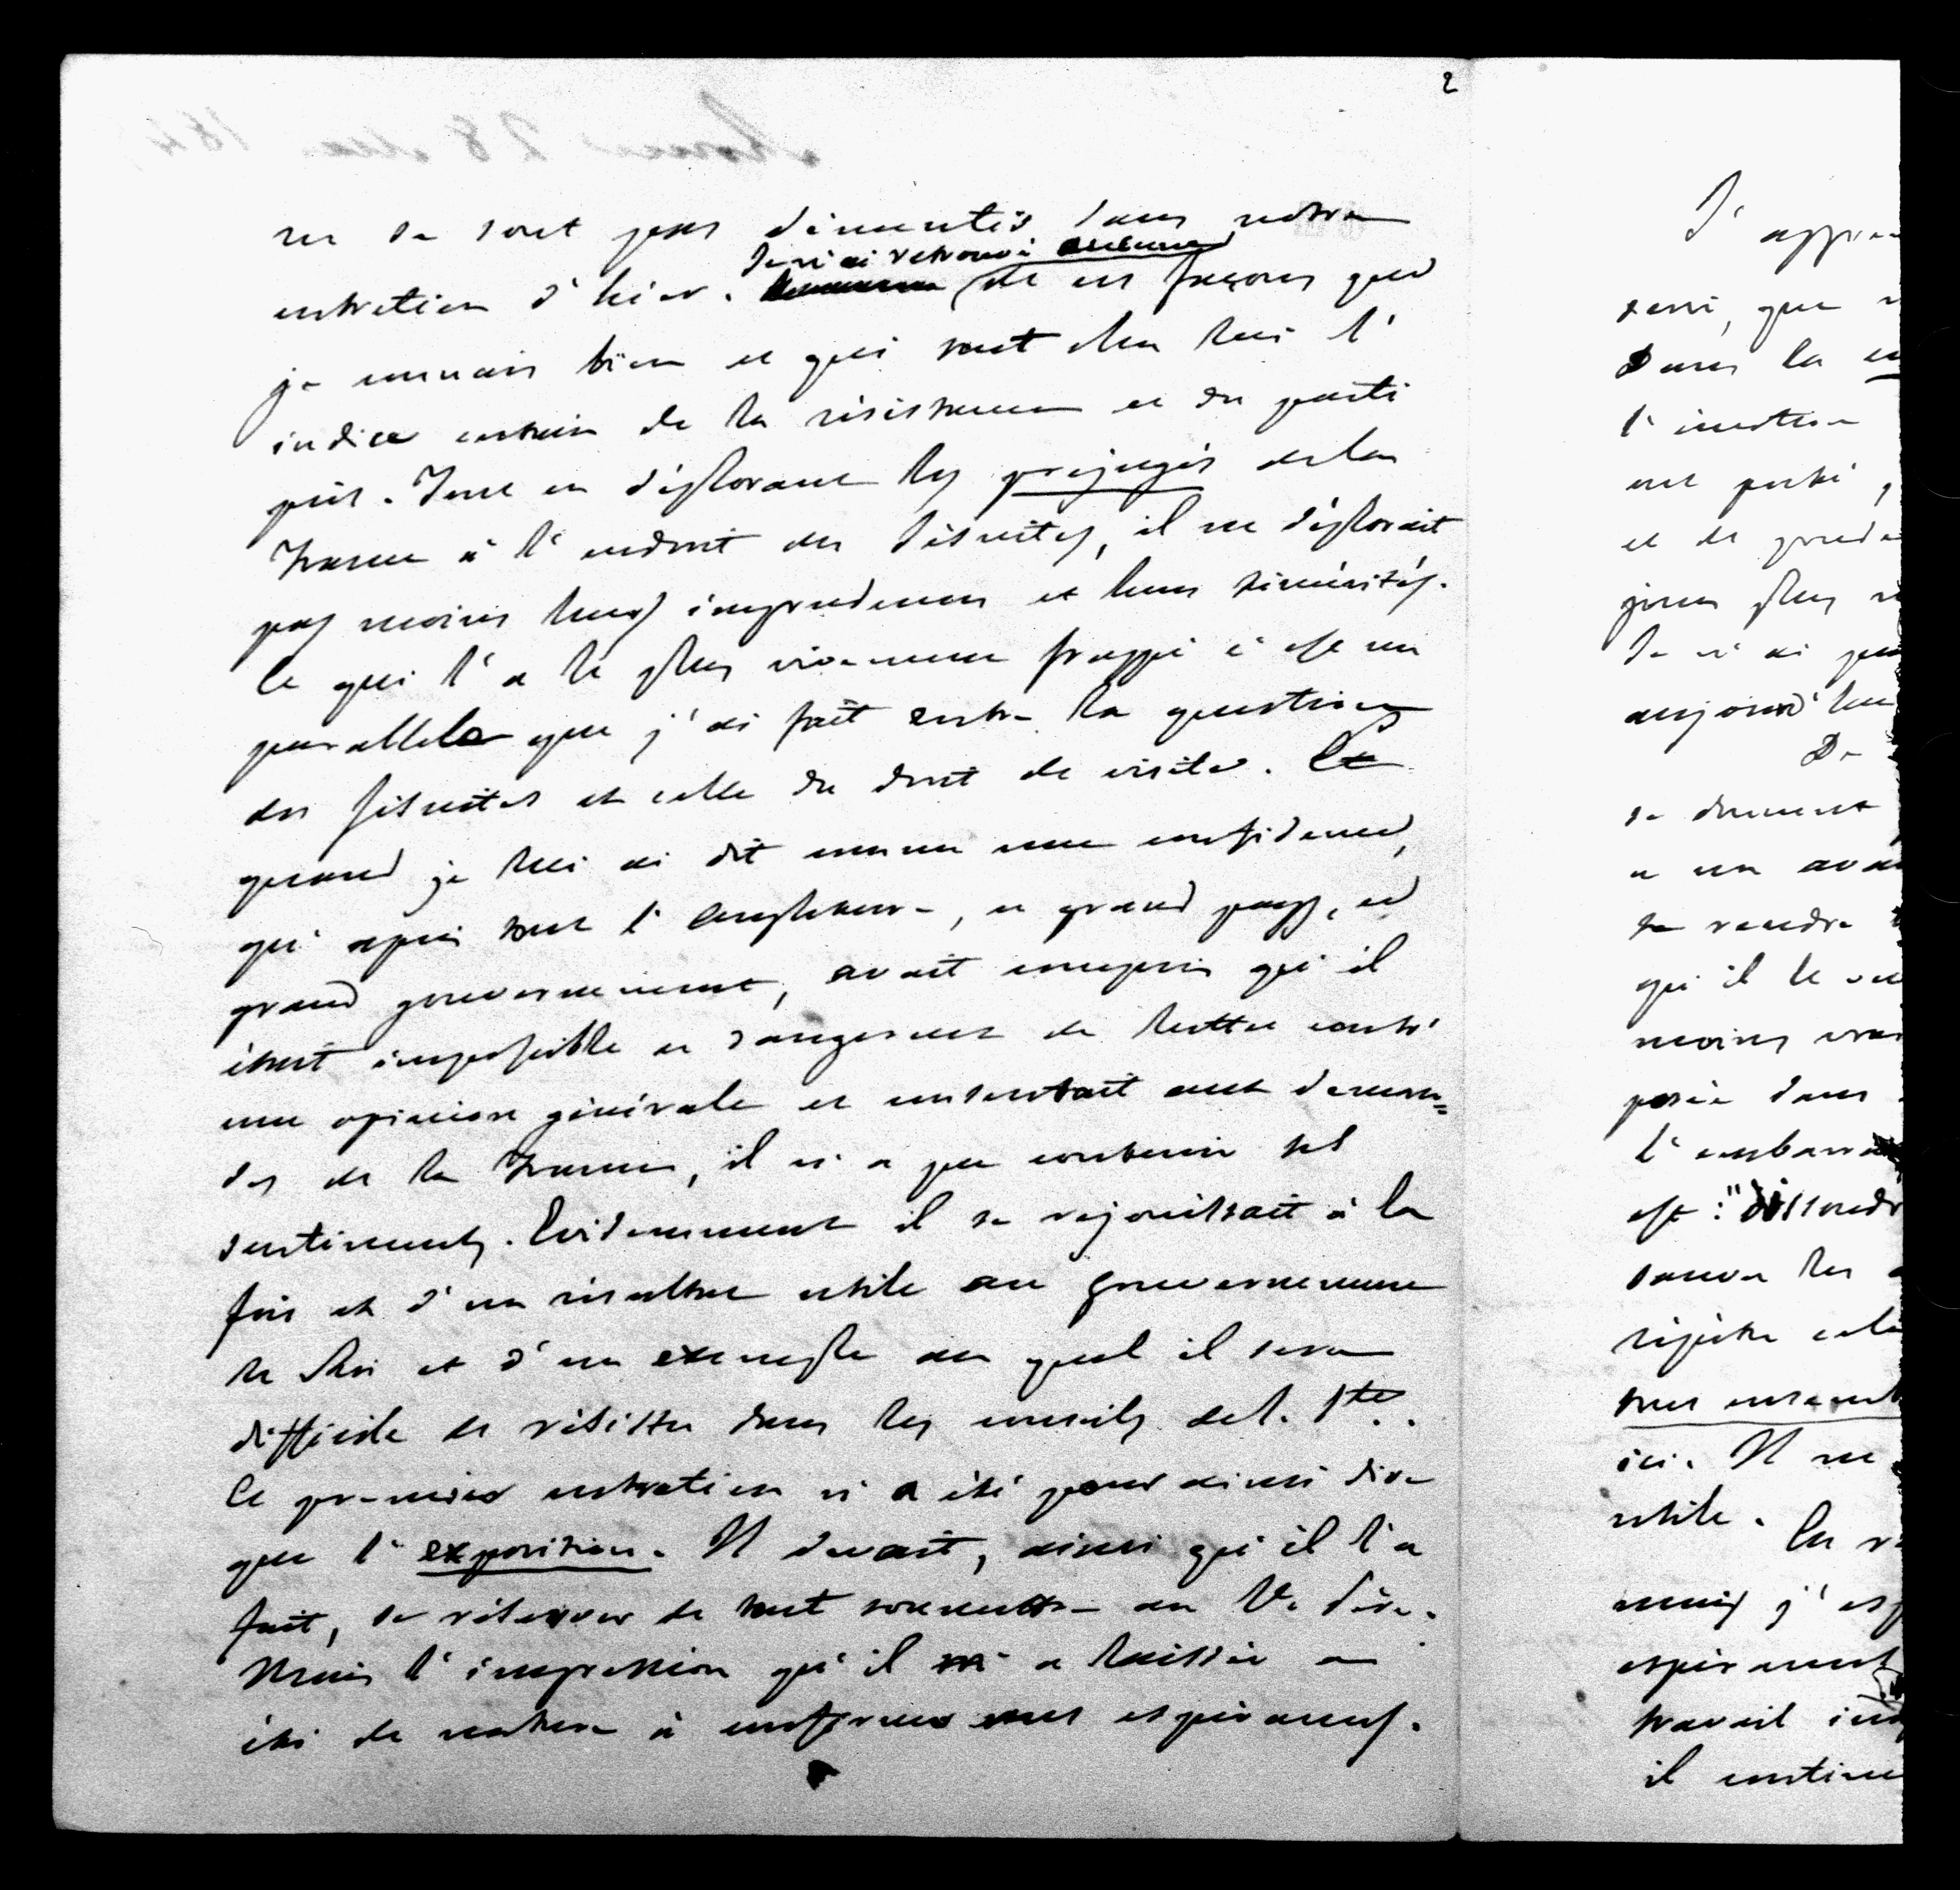 2
ne se sont pas démentis dans notre
Je n'ai retrouvé aucune
entretien d'hier. de ces façons que
je connais bien et qui sont chez lui l'
indice certain de la résistance et du parti
pris. Tout en déplorant les préjugés de la
France à l'endroit des Jésuites, il ne déplorait
pas moins leurs imprudences et leurs témérités.
Ce qui l'a le plus vivement frappé c'est un
parallele que j'ai fait entre la question
des Jésuites et celle du droit de visite. Et
quand je lui ai dit comme une confidence,
qu'après tout l'Angleterre, ce grand pays, ce
grand gouvernement, avait compris qu'il
était impossible et dangereux de lutter contre
une opinion générale et consentait aux deman=
des de la France, il n'a pu contenir ses
sentiments. Evidemment il se rejouissait à la
fois et d'un résultat utile au gouvernement
du Roi et d'un exemple au quel il sera
difficile de résister dans les conseils de S. Sté.
Ce premier entretien n'a été pour ainsi dire
que l'exposition. Il devait, ainsi qu'il l'a
fait, se réserver de tout soumettre au St. Père.
Mais l'impression qu'il m'a laissée a
été de nature à confirmer mes espérances.
J'appren
saisi, que
Dans la
l'inertie
est porté,
et de prude
jours plus
Je n'ai pas
aujourd'hui
De
se donnent
a un avan
se rendre
qu'il le
moins
posée dans
l'embarra
est: "dissoudr
sauver les
répète cela
tous
ici. Il ne
utile.
mais j'esp
espérant
travail
il continue